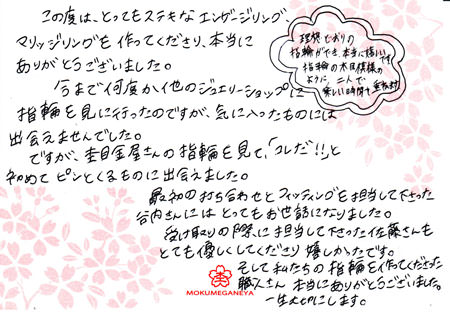 この度は、とってもステキなエンゲージリング、
マリッジリングを作ってくださり、本当に
ありがとうございました。
今まで何度か他のジュエリーショップに
指輪を見に行ったのですが、気に入ったものには
出会えませんでした。
ですが、杢目金屋さんの指輪を見て、「コレだ!!」と
初めてピンとくるものに出会えました。
最初の打ち合わせとフィッティングを担当して下さった
谷内さんにはとってもお世話になりました。
受け取りの際に担当して下さった佐藤さんも
とても優しくしてくださり嬉しかったです。
そして私たちの指輪を作ってくださった
職人さん本当にありがとうございました。
一生大切にします。
理想どおりの
指輪ができ、本当に嬉しいです。
指輪の木目模様の
ように、二人で
楽しい時間を重ね
MOKUMEGANEYA